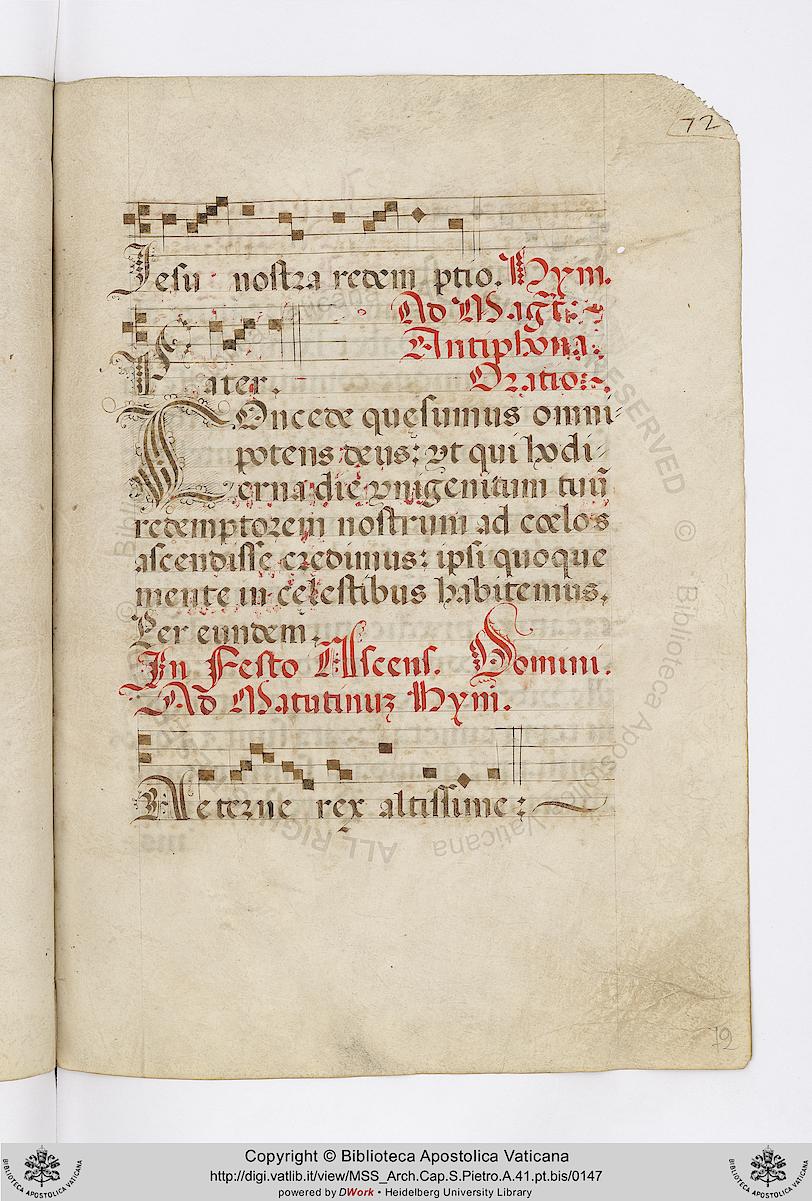 72
Jesu nostra redem ptio. Hym.
Ad Magt:
Antiphona.
Pater.
Oratio.
COncede quesumus omni-
potens deus: vt qui hodi-
erna die vnigenitum tuũ
redemptorem nostrum ad cœlos
ascendisse credimus: ipsi quoque
mente in celestibus habitemus.
Per eundem.
In Festo Ascens. Domini.
Ad Matutinuz Hym.
Aeterne rex altissime:
72
Copyright © Biblioteca Apostolica Vaticana
http://digi.vatlib.it/view/MSS_Arch.Cap.S.Pietro.A.41.pt.bis/0147
powered by DWork • Heidelberg University Library
BIBLIOTECA APOSTOLICA VATICANA
BIBLIOTECA APOSTOLICA VATICANA